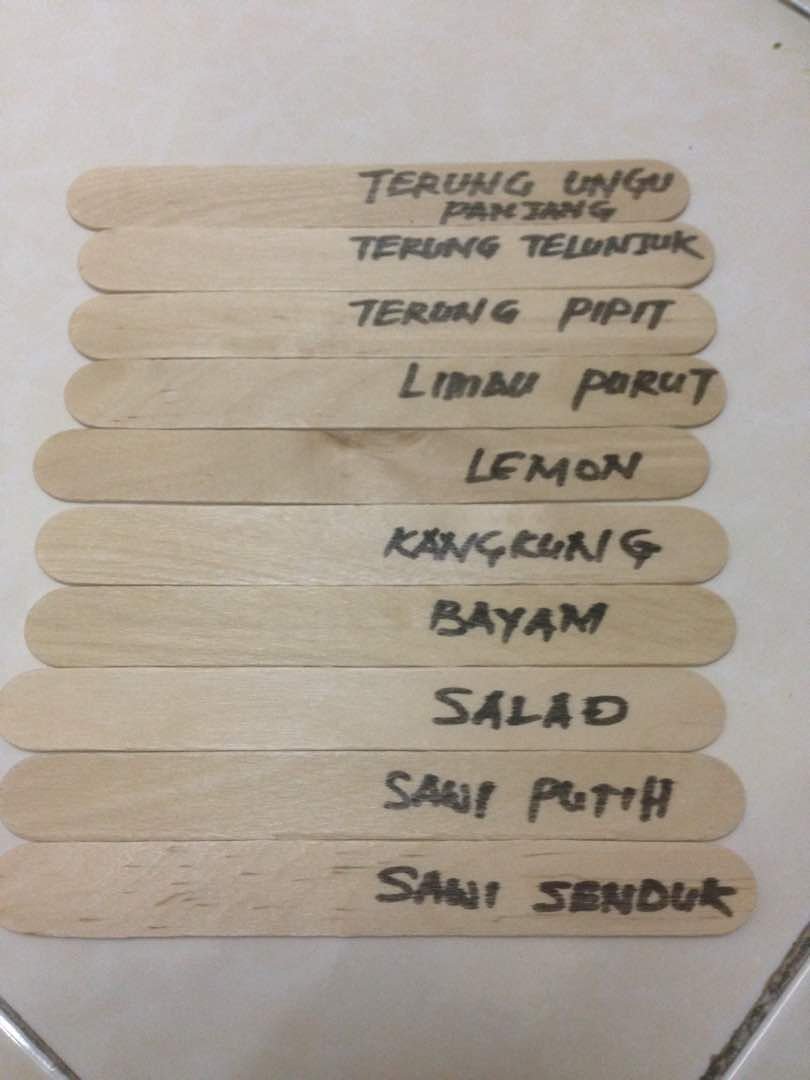 TERUNG UNGU
PANJANG
TERUNG TELUNJUK
TERUNG PIPIT
LIMAU PURUT
LEMON
KANGKUNG
BAYAM
SALAD
SAWI PUTIH
SAWI SENDUK